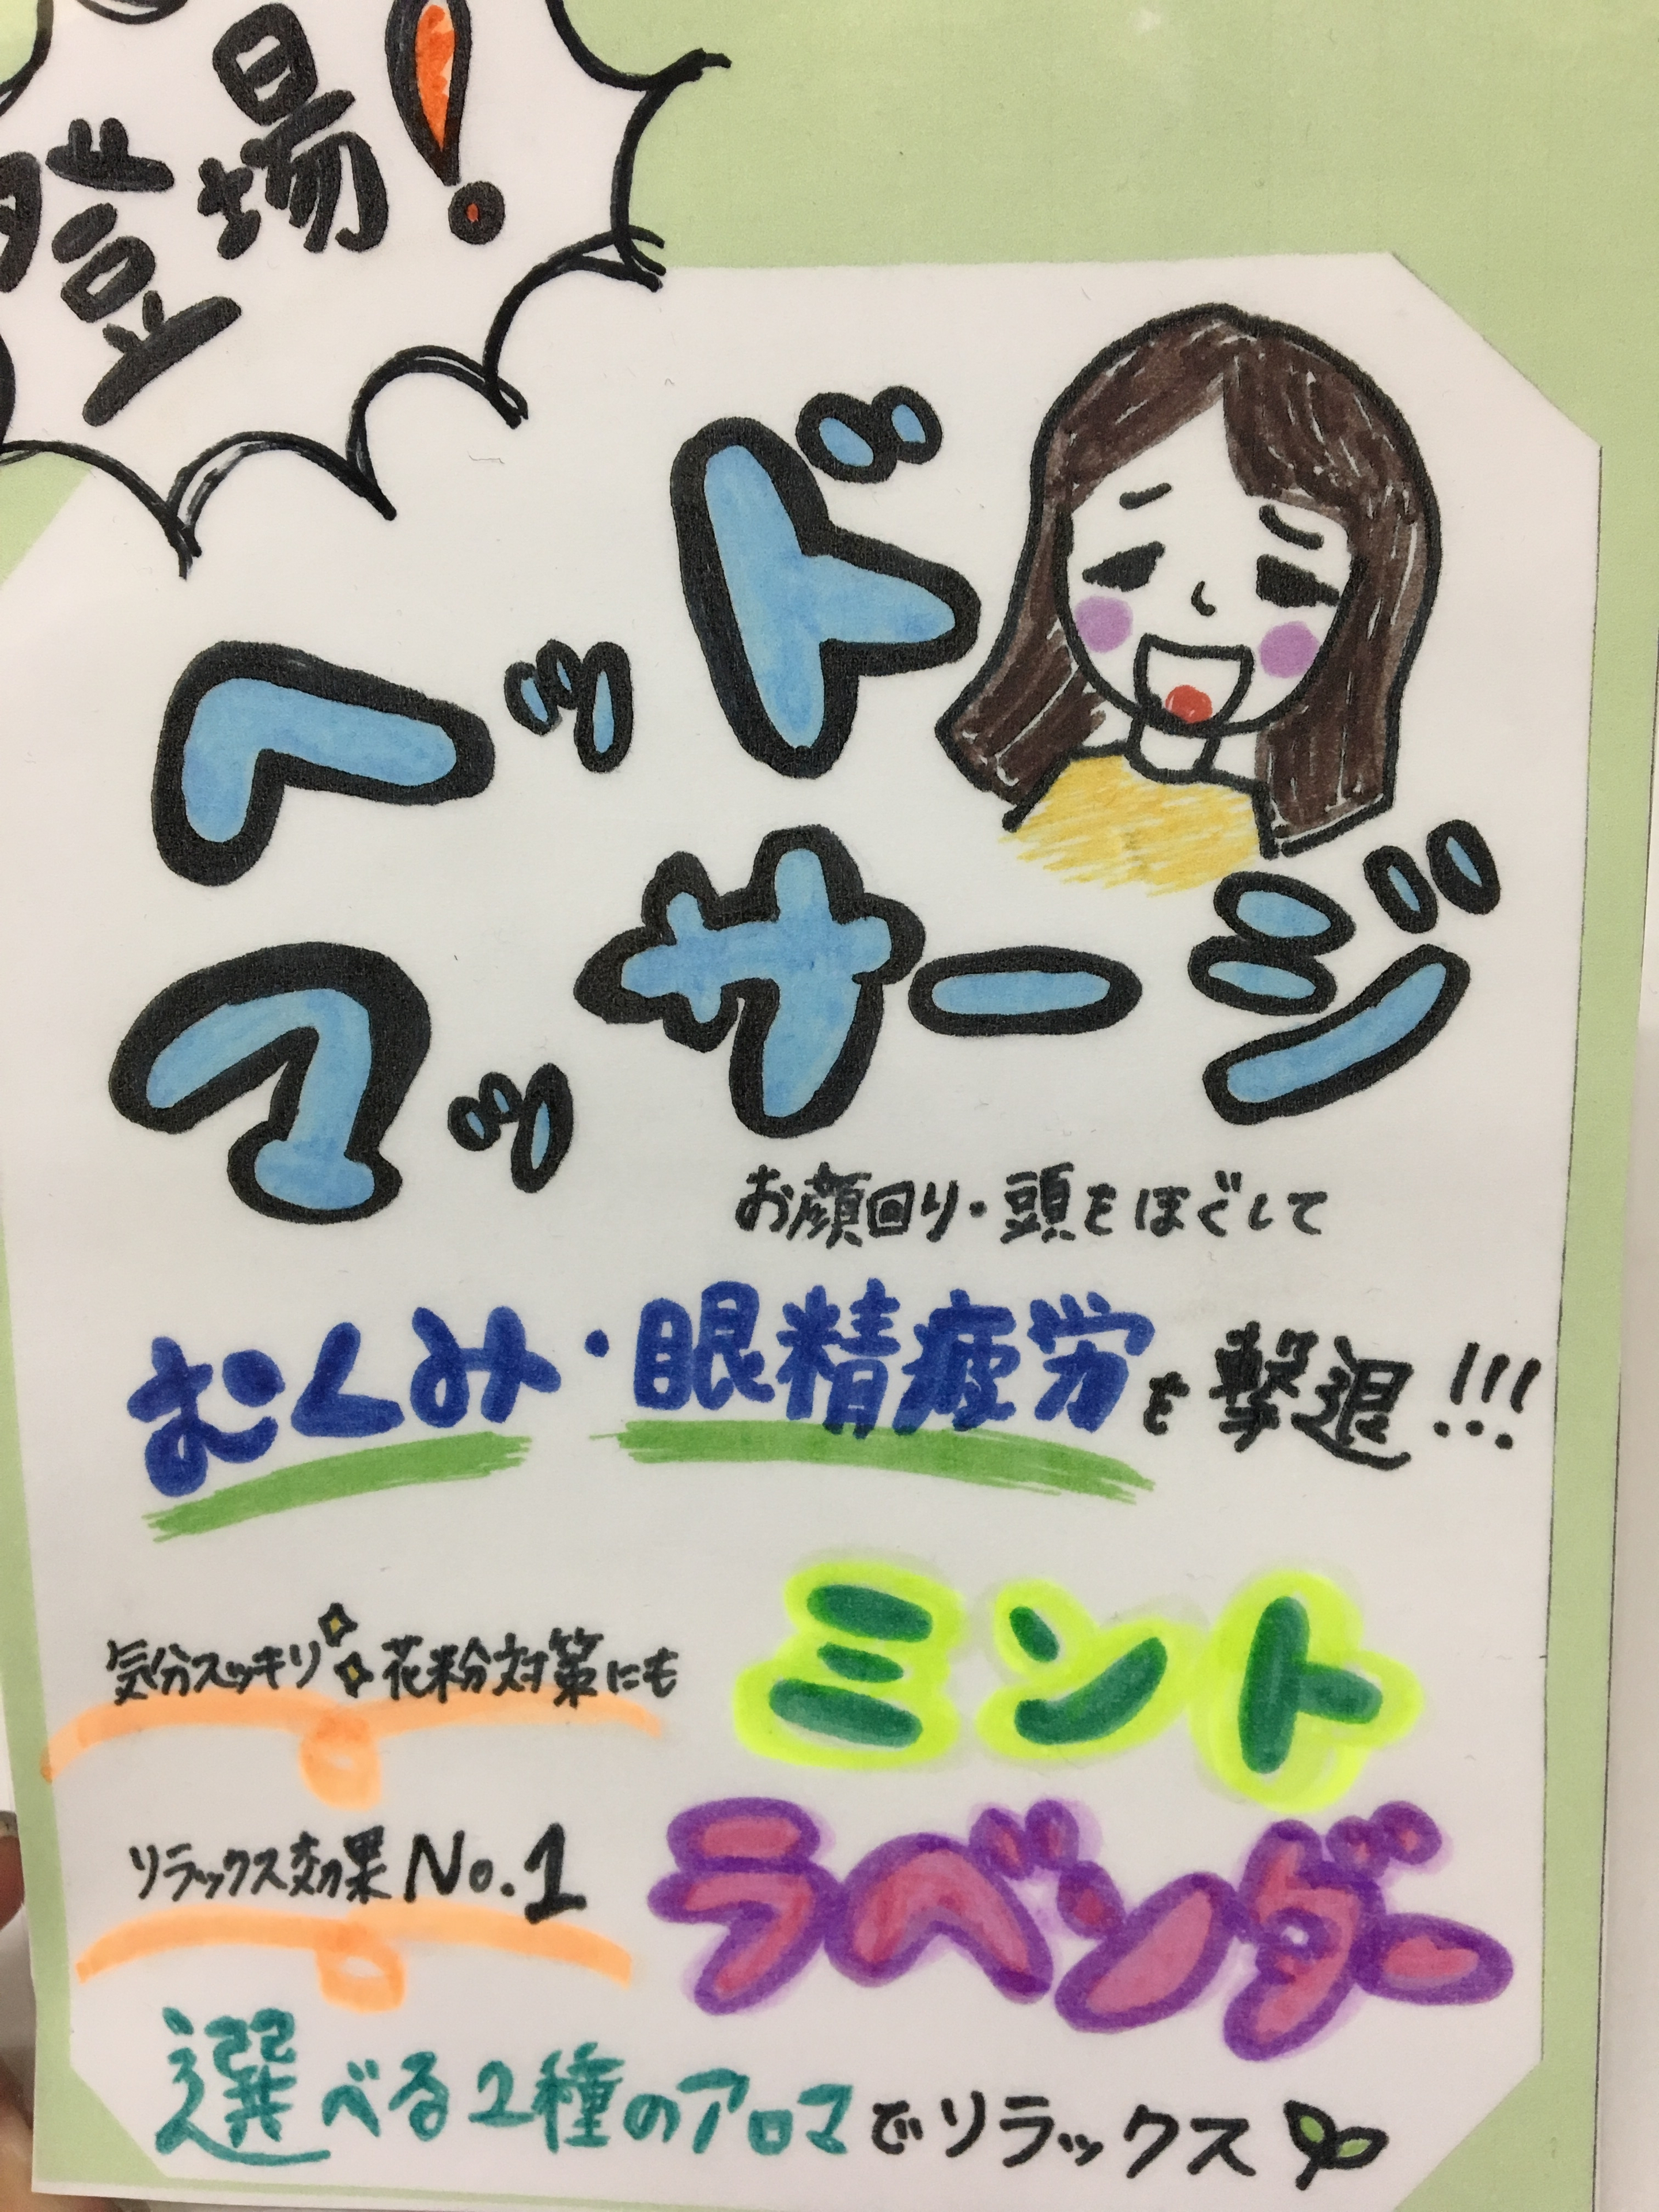 登場!
ヘッド
マッサージ
お顔回り・頭をほぐして
むくみ・眼精疲労を撃退!!!
気分スッキリ 花粉対策にも
ミント
リラックス効果No.1
ラベンダー
選べる2種のアロマでリラックス